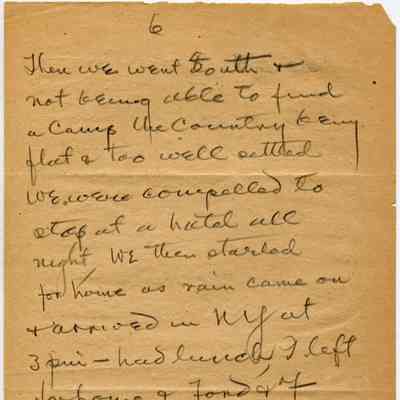 6
Then we went South &
not being able to find
a Camp the Country being
flat & too well settled
we were compelled to
stop at a hotel all
night We then started
for home as rain came on
& arrived in NY at
3 pm - had lunch, I left
for home & Ford &